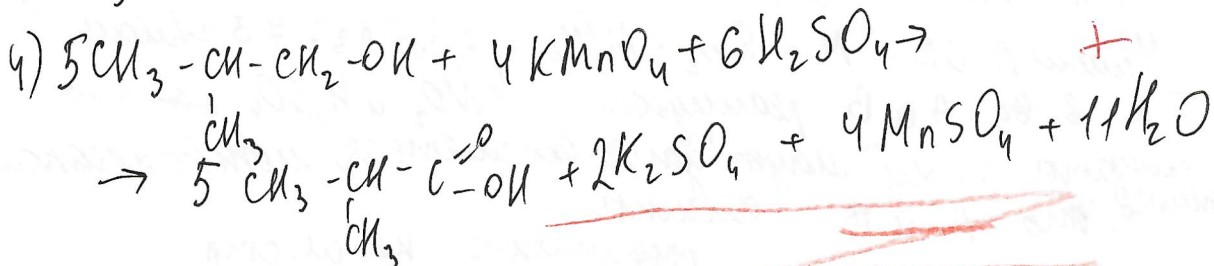 4) 5CH₃-CH-CH₂-OH + 4KMnO₄ + 6H₂SO₄ → +
CH₃
→ 5 CH₃-CH-C=O-OH + 2K₂SO₄ + 4MnSO₄ + 11H₂O
CH₃